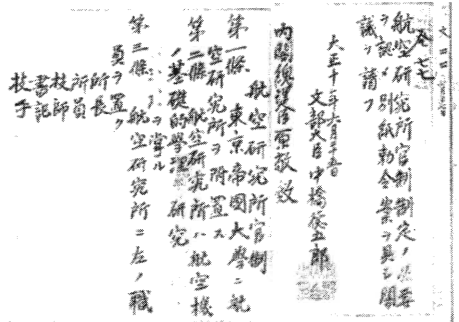 航空研究所官制制定ノ必要
ヲ認メ別紙勅令案ヲ具シ閣
議ヲ請フ
大正十年六月
文部大臣中橋徳五郎
内閣總理大臣原敬殿
航空研究所官制
第一條 東京帝國大學ニ航
空研究所ヲ附置ス
第二條 航空研究所ハ航空機
ノ基礎的學理研究
ヲ掌ル
第三條 航空研究所ニ左ノ職
員ヲ置ク
所長
所員
技師
書記
技手